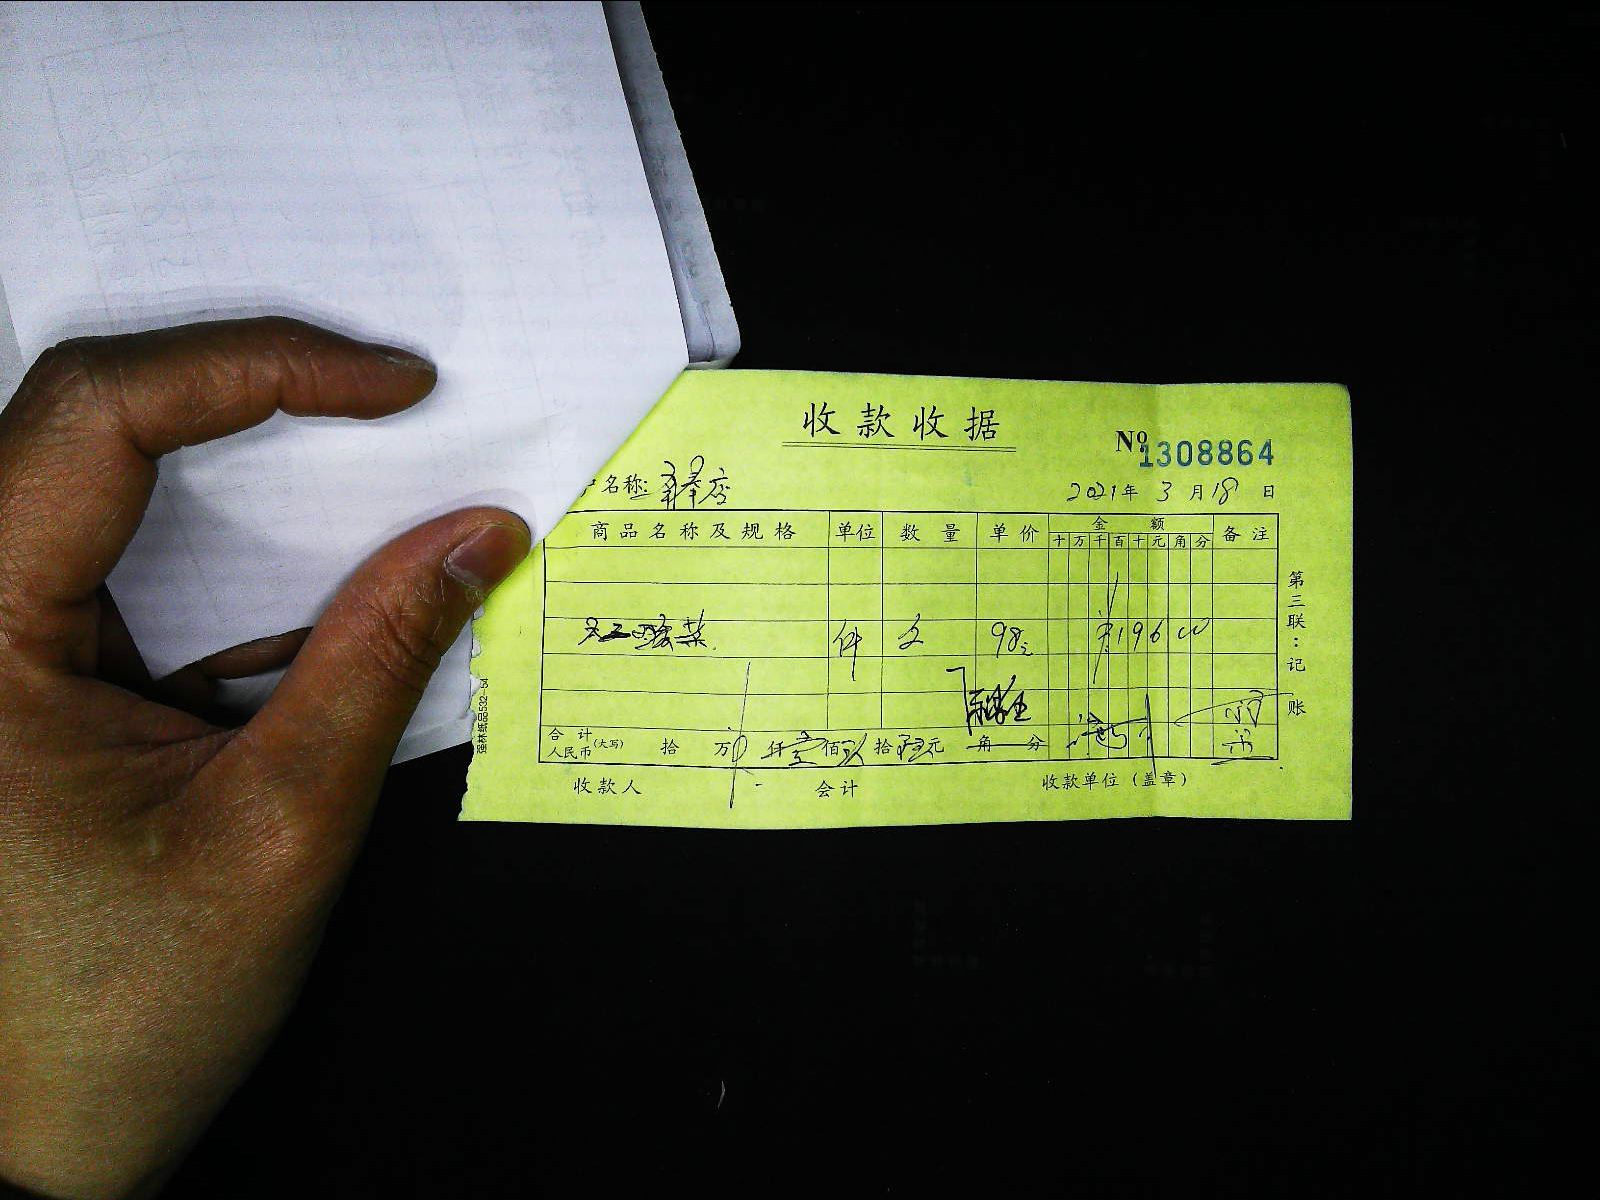 收款收据
Nº 1308864
名称:
2021年 3月18日
商品名称及规格 单位 数量 单价 金额 备注
十 万 千 百 十 元 角 分
件 2 98元 196 00
合计
人民币(大写) 拾 万 仟 壹 佰 玖 拾 元 角 分
收款人 会计 收款单位(盖章)
第三联:记账
强林纸品532-54